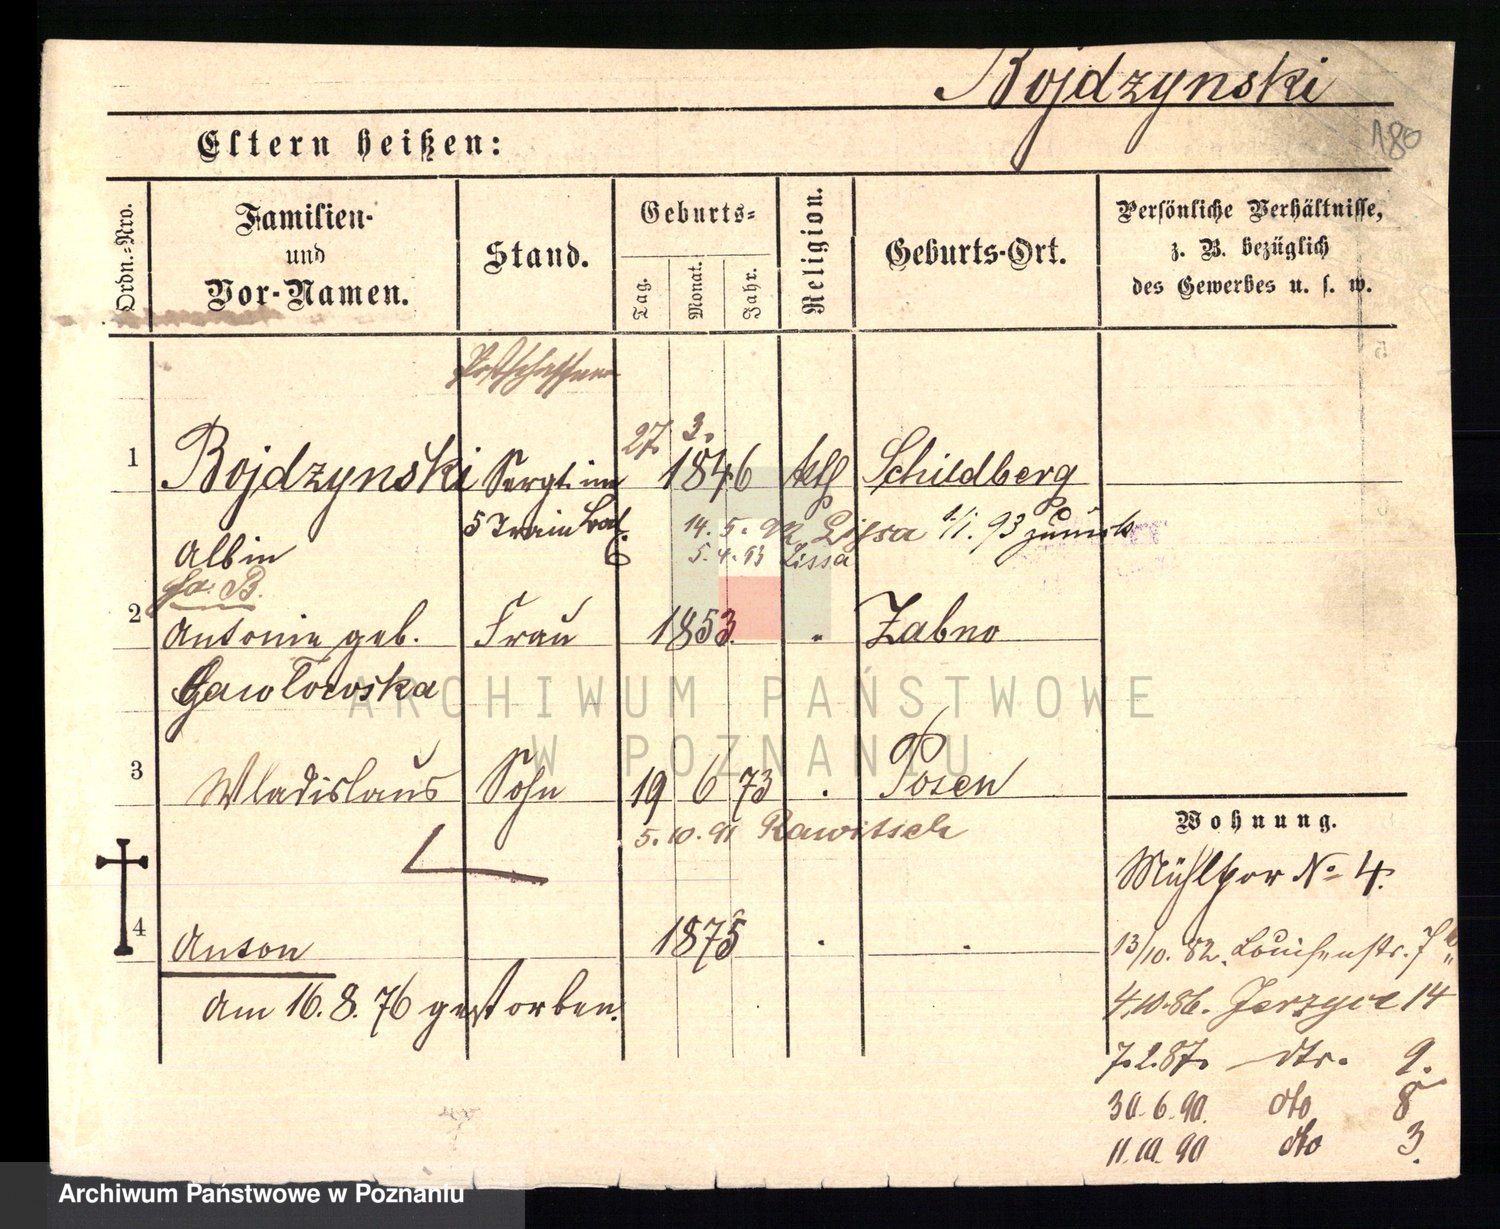 Bojdzynski
180
Eltern heißen:
Ordn.-Nro.
Familien-
und
Vor-Namen.
Stand.
Geburts-
Tag.
Monat.
Jahr.
Religion.
Geburts-Ort.
Persönliche Verhältnisse,
z. B. bezüglich
des Gewerbes u. s. w.
1 Bojdzynski Sergt. im 27. 3. 1846 kth Schildberg
5 Train Bat.
6
14. 5. 92 Lissa 1/1. 93 zurück
Albin
5. 4. 93 Lissa
2 Antonie geb. Frau 1853. " Zabno
Gawłowska
3 Wladislaus Sohn 19 6 73 . Posen
5. 10. 91 Rawitsch
4 Anton 1875 . .
Am 16. 8. 76 gestorben.
Wohnung.
Mühlthor No 4.
13/10. 82. Louisenstr. 7
4.10.86. Jerzyce 14
7.2.87. dto. 9.
30. 6. 90. dto 8
11. 10. 90 dto 3.
ARCHIWUM PAŃSTWOWE
W POZNANIU
Archiwum Państwowe w Poznaniu